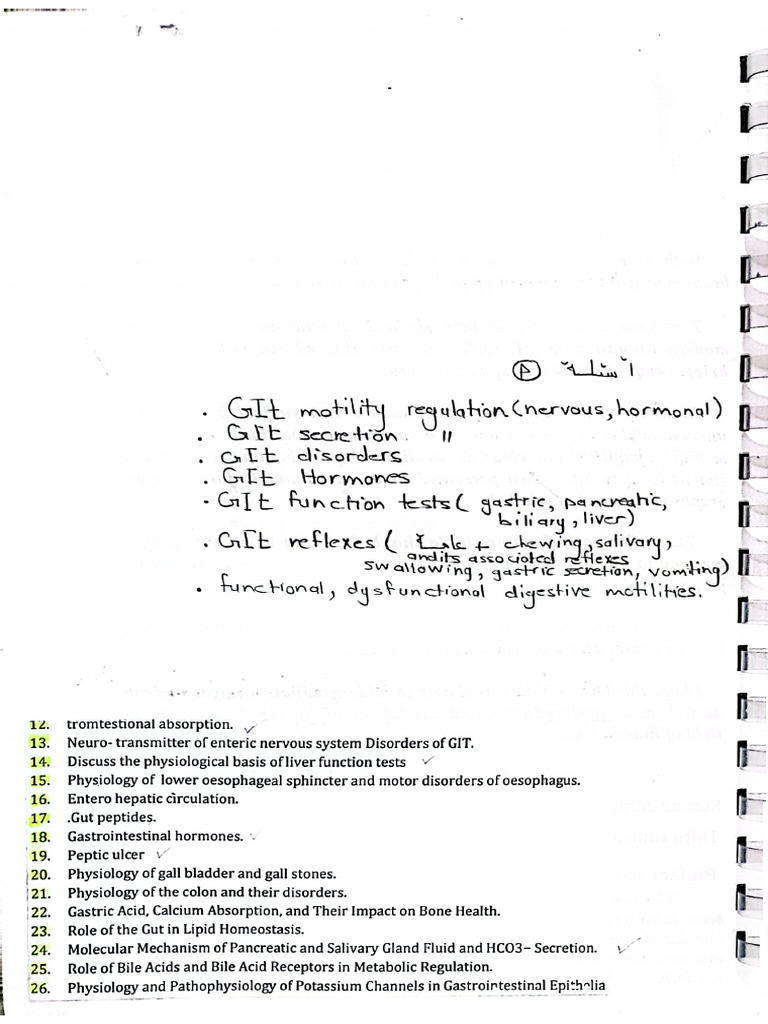 أسئلة P
. GIt motility regulation (nervous, hormonal)
. GIt secretion "
. GIt disorders
. GIt Hormones
. GIt function tests ( gastric, pancreatic,
biliary, liver)
. GIt reflexes ( + chewing, salivary,
and its associated reflexes
swallowing, gastric secretion, vomiting)
. functional, dysfunctional digestive motilities.
12. tromtestional absorption. ✓
13. Neuro- transmitter of enteric nervous system Disorders of GIT.
14. Discuss the physiological basis of liver function tests ✓
15. Physiology of lower oesophageal sphincter and motor disorders of oesophagus.
16. Entero hepatic circulation.
17. .Gut peptides.
18. Gastrointestinal hormones. ✓
19. Peptic ulcer ✓
20. Physiology of gall bladder and gall stones.
21. Physiology of the colon and their disorders.
22. Gastric Acid, Calcium Absorption, and Their Impact on Bone Health.
23. Role of the Gut in Lipid Homeostasis.
24. Molecular Mechanism of Pancreatic and Salivary Gland Fluid and HCO3– Secretion. ✓
25. Role of Bile Acids and Bile Acid Receptors in Metabolic Regulation.
26. Physiology and Pathophysiology of Potassium Channels in Gastrointestinal Epithelia